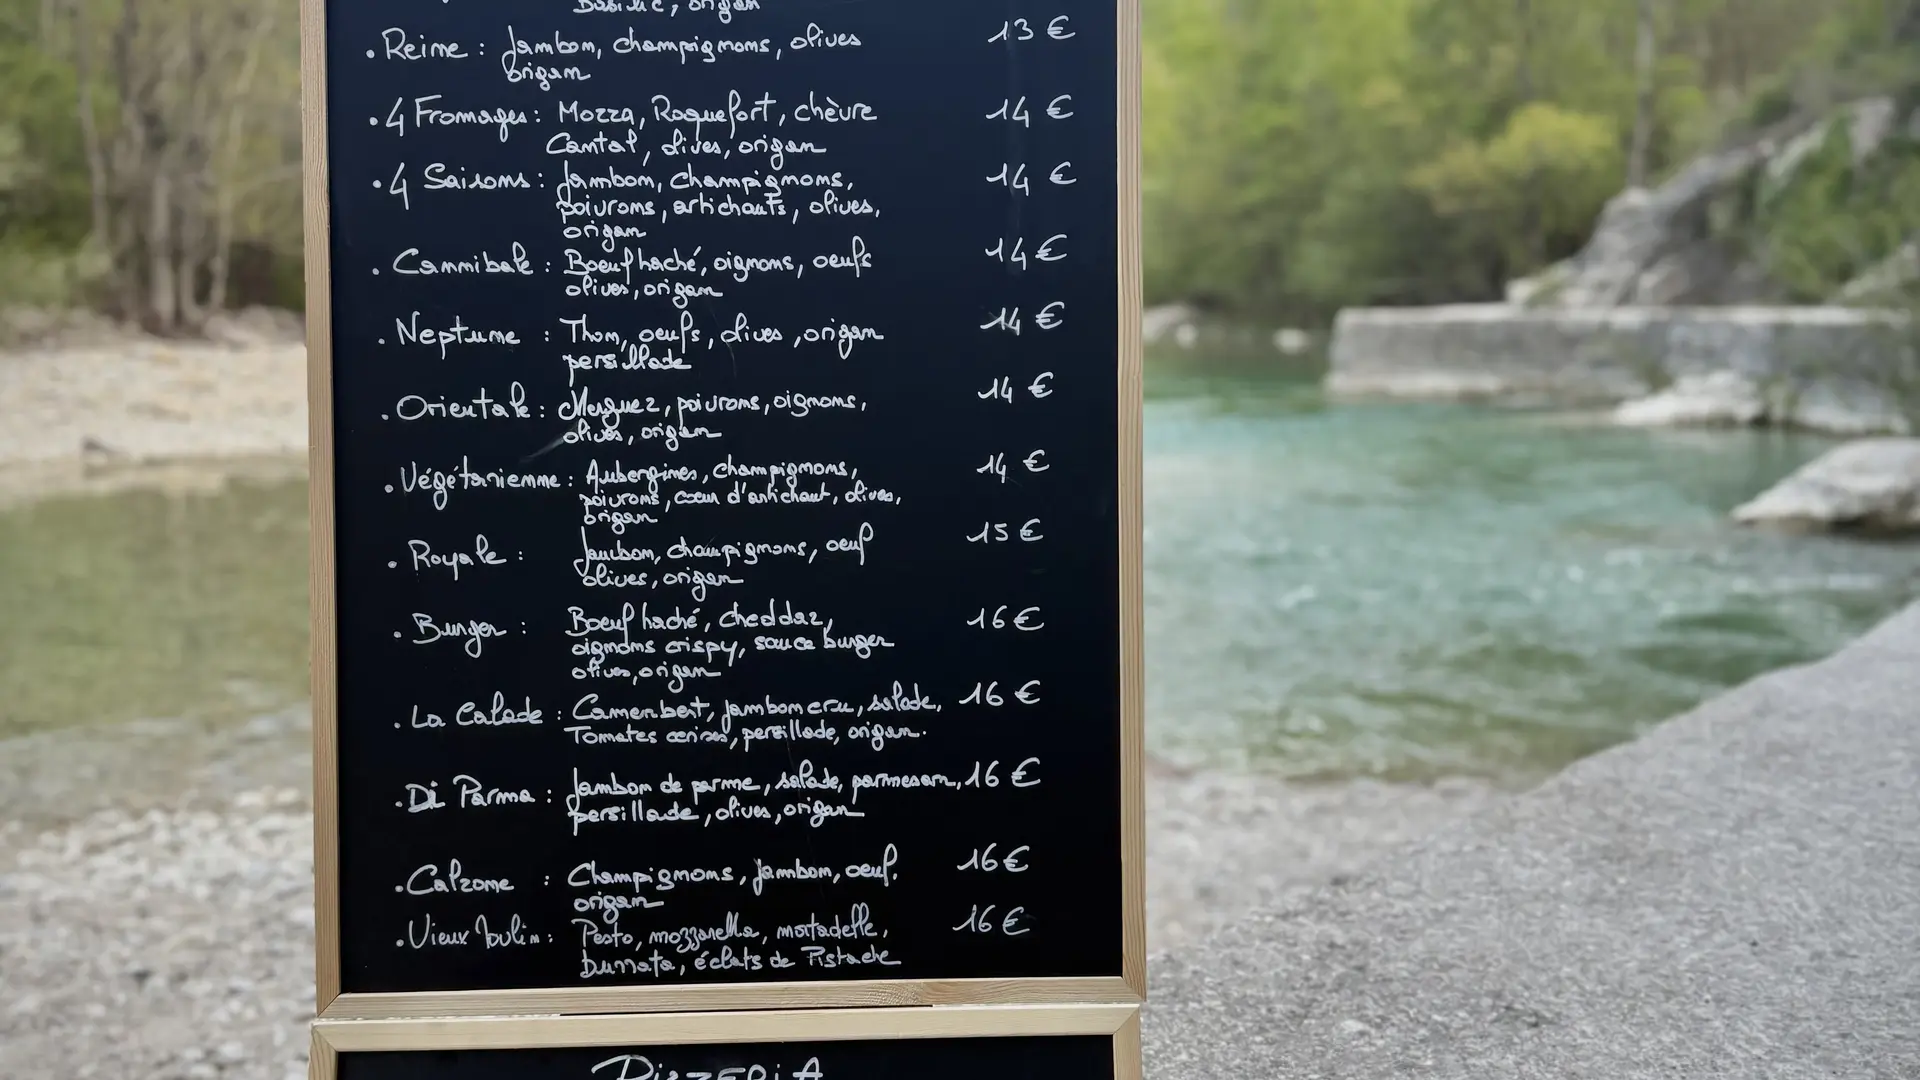 Basilic, origan
. Reine : Jambon, champignons, olives 13 €
origan
. 4 Fromages : Mozza, Roquefort, chèvre 14 €
Cantal, olives, origan
. 4 Saisons : Jambon, champignons, 14 €
poivrons, artichauts, olives,
origan
. Cannibale : Boeuf haché, oignons, oeufs 14 €
olives, origan
. Neptune : Thon, oeufs, olives, origan 14 €
persillade
. Orientale : Merguez, poivrons, oignons, 14 €
olives, origan
. Végétarienne : Aubergines, champignons, 14 €
poivrons, cœur d'artichaut, olives,
origan
. Royale : Jambon, champignons, oeuf 15 €
olives, origan
. Burger : Boeuf haché, cheddar, 16 €
oignons crispy, sauce burger
olives, origan
. La Calade : Camenbert, jambon cru, salade, 16 €
Tomates cerises, persillade, origan.
. Di Parma : Jambon de parme, salade, parmesan, 16 €
persillade, olives, origan
. Calzone : Champignons, jambon, oeuf, 16 €
origan
. Vieux Moulin : Pesto, mozzarella, mortadelle, 16 €
burrata, éclats de Pistache
PizzERiA